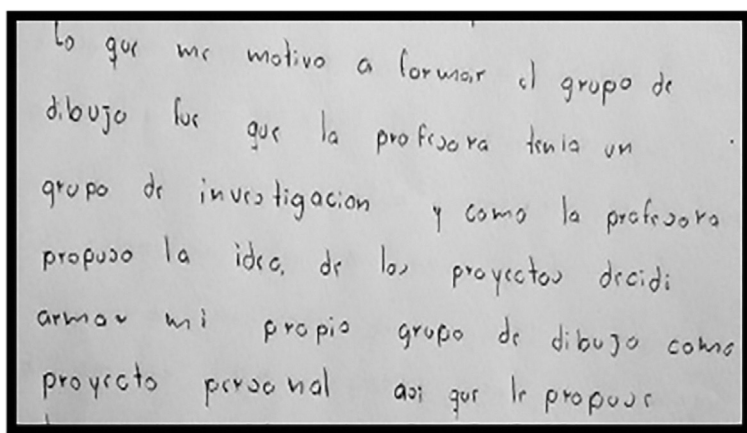 lo que me motivo a formar el grupo de
dibujo fue que la profesora tenia un
grupo de investigacion y como la profesora
propuso la idea de los proyectos decidi
armar mi propio grupo de dibujo como
proyecto personal asi que le propuse